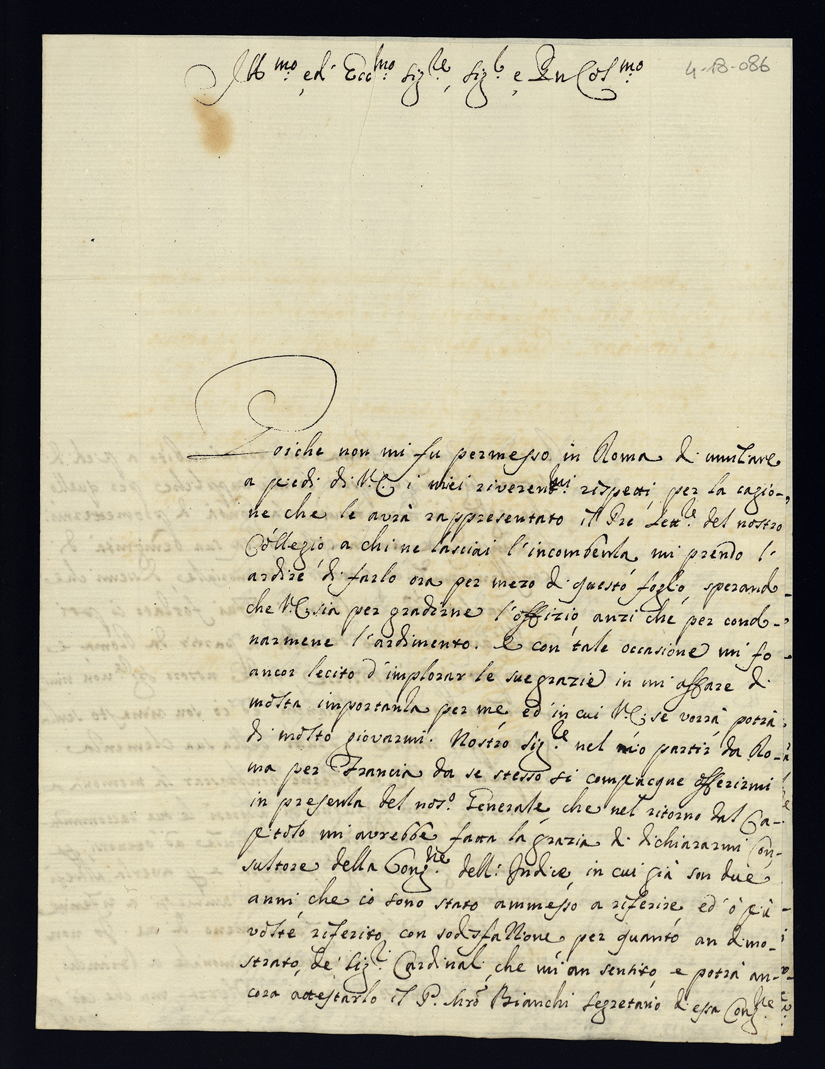 Ill.mo ed Ecc.mo Sig.re, Sig.r e Pn Col.mo 4-18-086
Poiche non mi fu permesso in Roma di umiliare
a piedi di V.E. i miei riverent.mi rispetti per la cagio-
ne che le avrà rappresentato il Pre Lett.e del nostro
Collegio a chi ne lasciai l'incombenza mi prendo l'
ardire di farlo ora per mezo di questo foglio, sperand
che V.E. sia per gradirne l'offizio anzi che per cond-
narmene l'ardimento. e con tale occasione mi fo
ancor lecito d'implorar le sue grazie in un affare di
molta importanza per me ed in cui V.E. se vorrà potrà
di molto giovarmi. Nostro Sig.re nel mio partir da Ro-
ma per Francia da se stesso si compiacque offerirmi
in presenza del nos.o Generale che nel ritorno dal Ca-
pitolo mi avrebbe fatta la grazia di dichiararmi Con-
sultore della Cong.ne dell' Indice, in cui già son due
anni che io sono stato ammesso a riferire ed ò più
volte riferito con sodisfazione per quanto an dimo-
strato de' Sig.ri Cardinal. che m'an sentito, e potrà an-
cora attestarlo il P. Mro Bianchi Segretario di essa Cong.ne